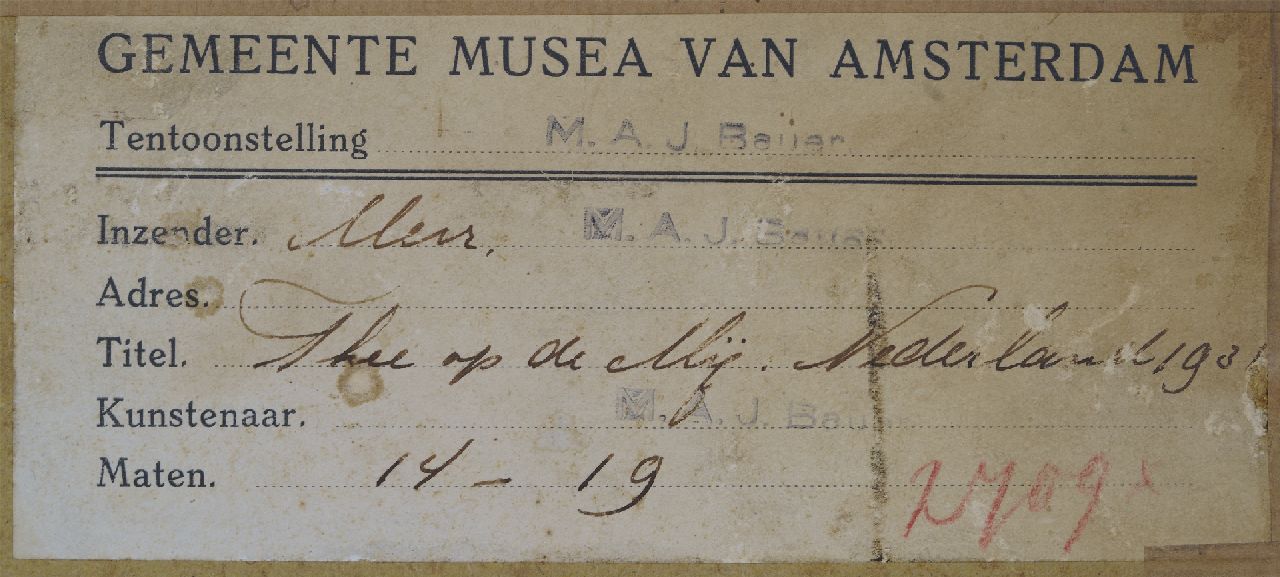 GEMEENTE MUSEA VAN AMSTERDAM
Tentoonstelling M. A. J. Bauer
Inzender. Mevr. M. A. J. Bauer
Adres.
Titel. Thee op de Mij. Nederland 1931
Kunstenaar. M. A. J. Bauer
Maten. 14 - 19